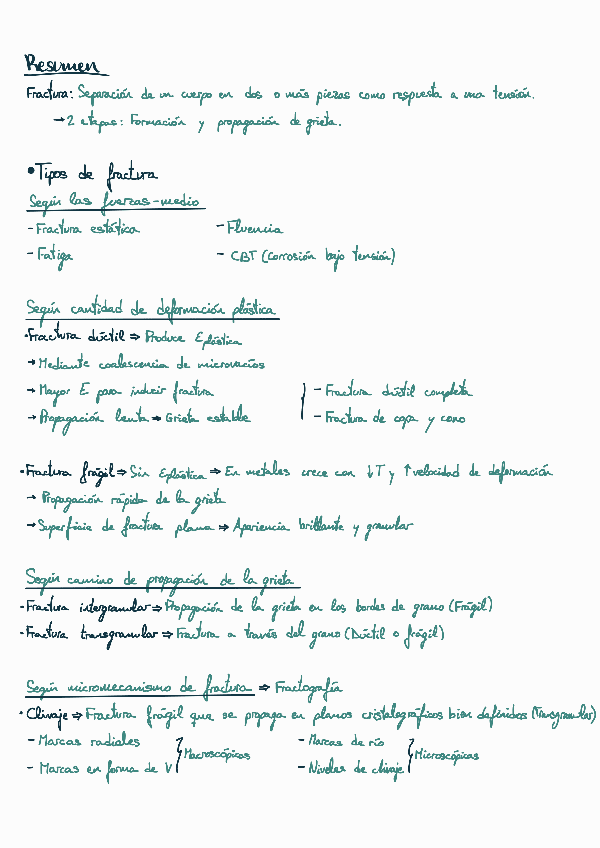 Resumen
Fractura: Separación de un cuerpo en dos o más piezas como respuesta a una tensión.
→ 2 etapas: Formación y propagación de grieta.
• Tipos de fractura
Según las fuerzas-medio
- Fractura estática - Fluencia
- Fatiga - CBT (Corrosión bajo tensión)
Según cantidad de deformación plástica
· Fractura dúctil ⇒ Produce Eplástica
→ Mediante coalescencia de microvacíos
→ Mayor E para inducir fractura - Fractura dúctil completa
→ Propagación lenta ⇒ Grieta estable - Fractura de copa y cono
· Fractura frágil ⇒ Sin Eplástica ⇒ En metales crece con ↓T y ↑velocidad de deformación
→ Propagación rápida de la grieta
→ Superficie de fractura plana ⇒ Apariencia brillante y granular
Según camino de propagación de la grieta
· Fractura intergranular ⇒ Propagación de la grieta en los bordes de grano (Frágil)
· Fractura transgranular ⇒ Fractura a través del grano (Dúctil o frágil)
Según micromecanismo de fractura ⇒ Fractografía
· Clivaje ⇒ Fractura frágil que se propaga en planos cristalográficos bien definidos (Transgranular)
- Marcas radiales } Macroscópicas - Marcas de río } Microscópicas
- Marcas en forma de V - Niveles de clivaje